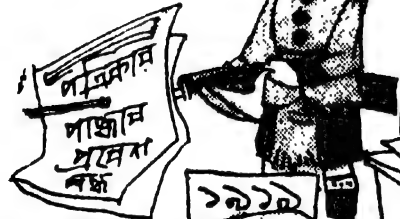 পত্রিকার
পাঞ্জাব
প্রবেশ
বন্ধ
১৯১৯